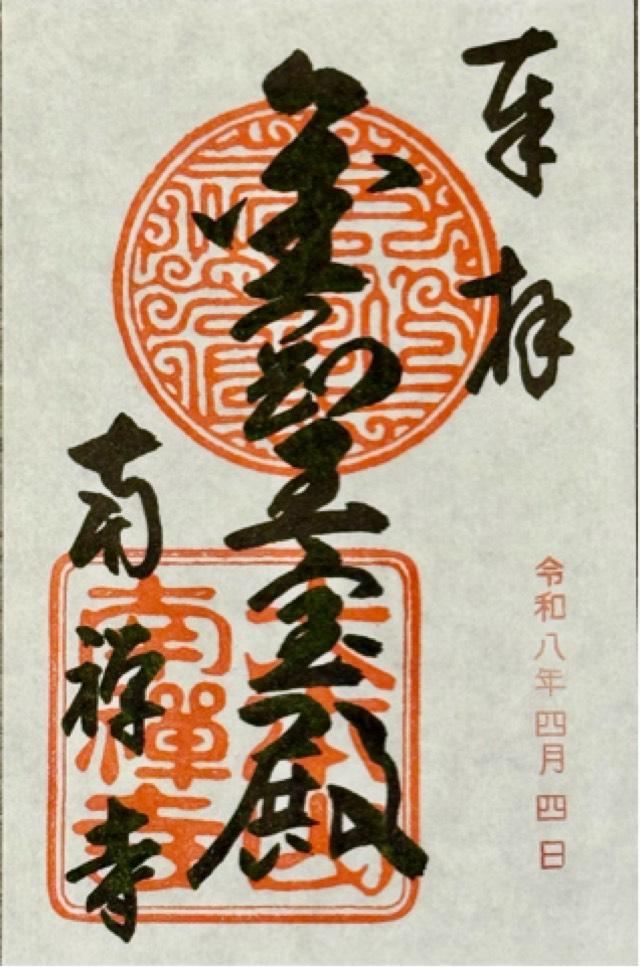 奉拝
令和八年四月四日
金剛王宝殿
南禅寺
大本山
南禪寺